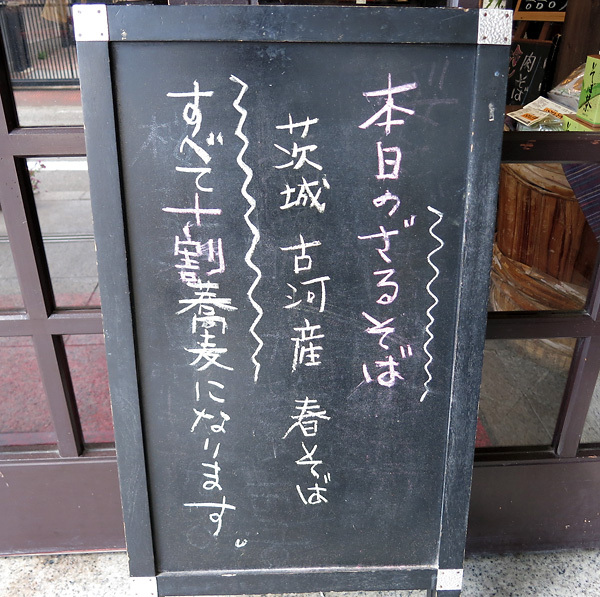 本日のざるそば
茨城 古河産 春そば
すべて十割蕎麦になります。
肉そば